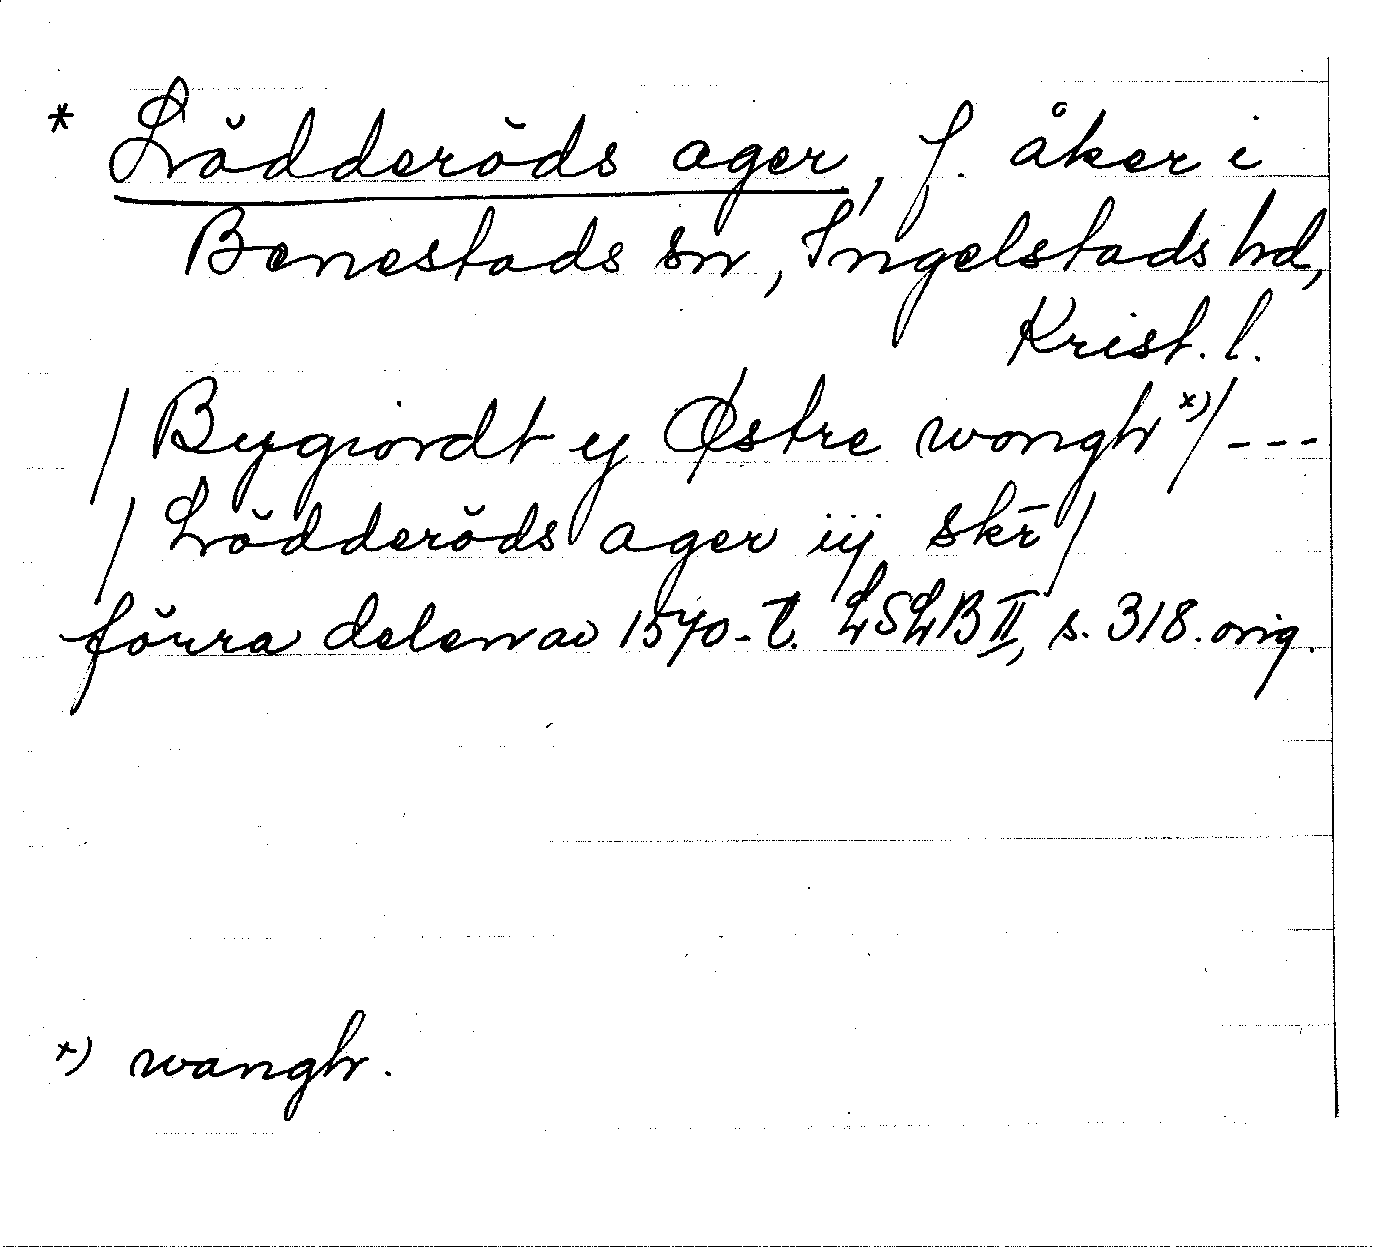 * Lödderöds ager, f. åker i
Benestads sn, Ingelstads hd,
Krist. l.
/ Bygiordt ij Østre wongh x) / ---
/ Lödderöds ager iij skr̄ /
förra delen av 1570-t. LSLB II, s. 318. orig.
x) wangh.